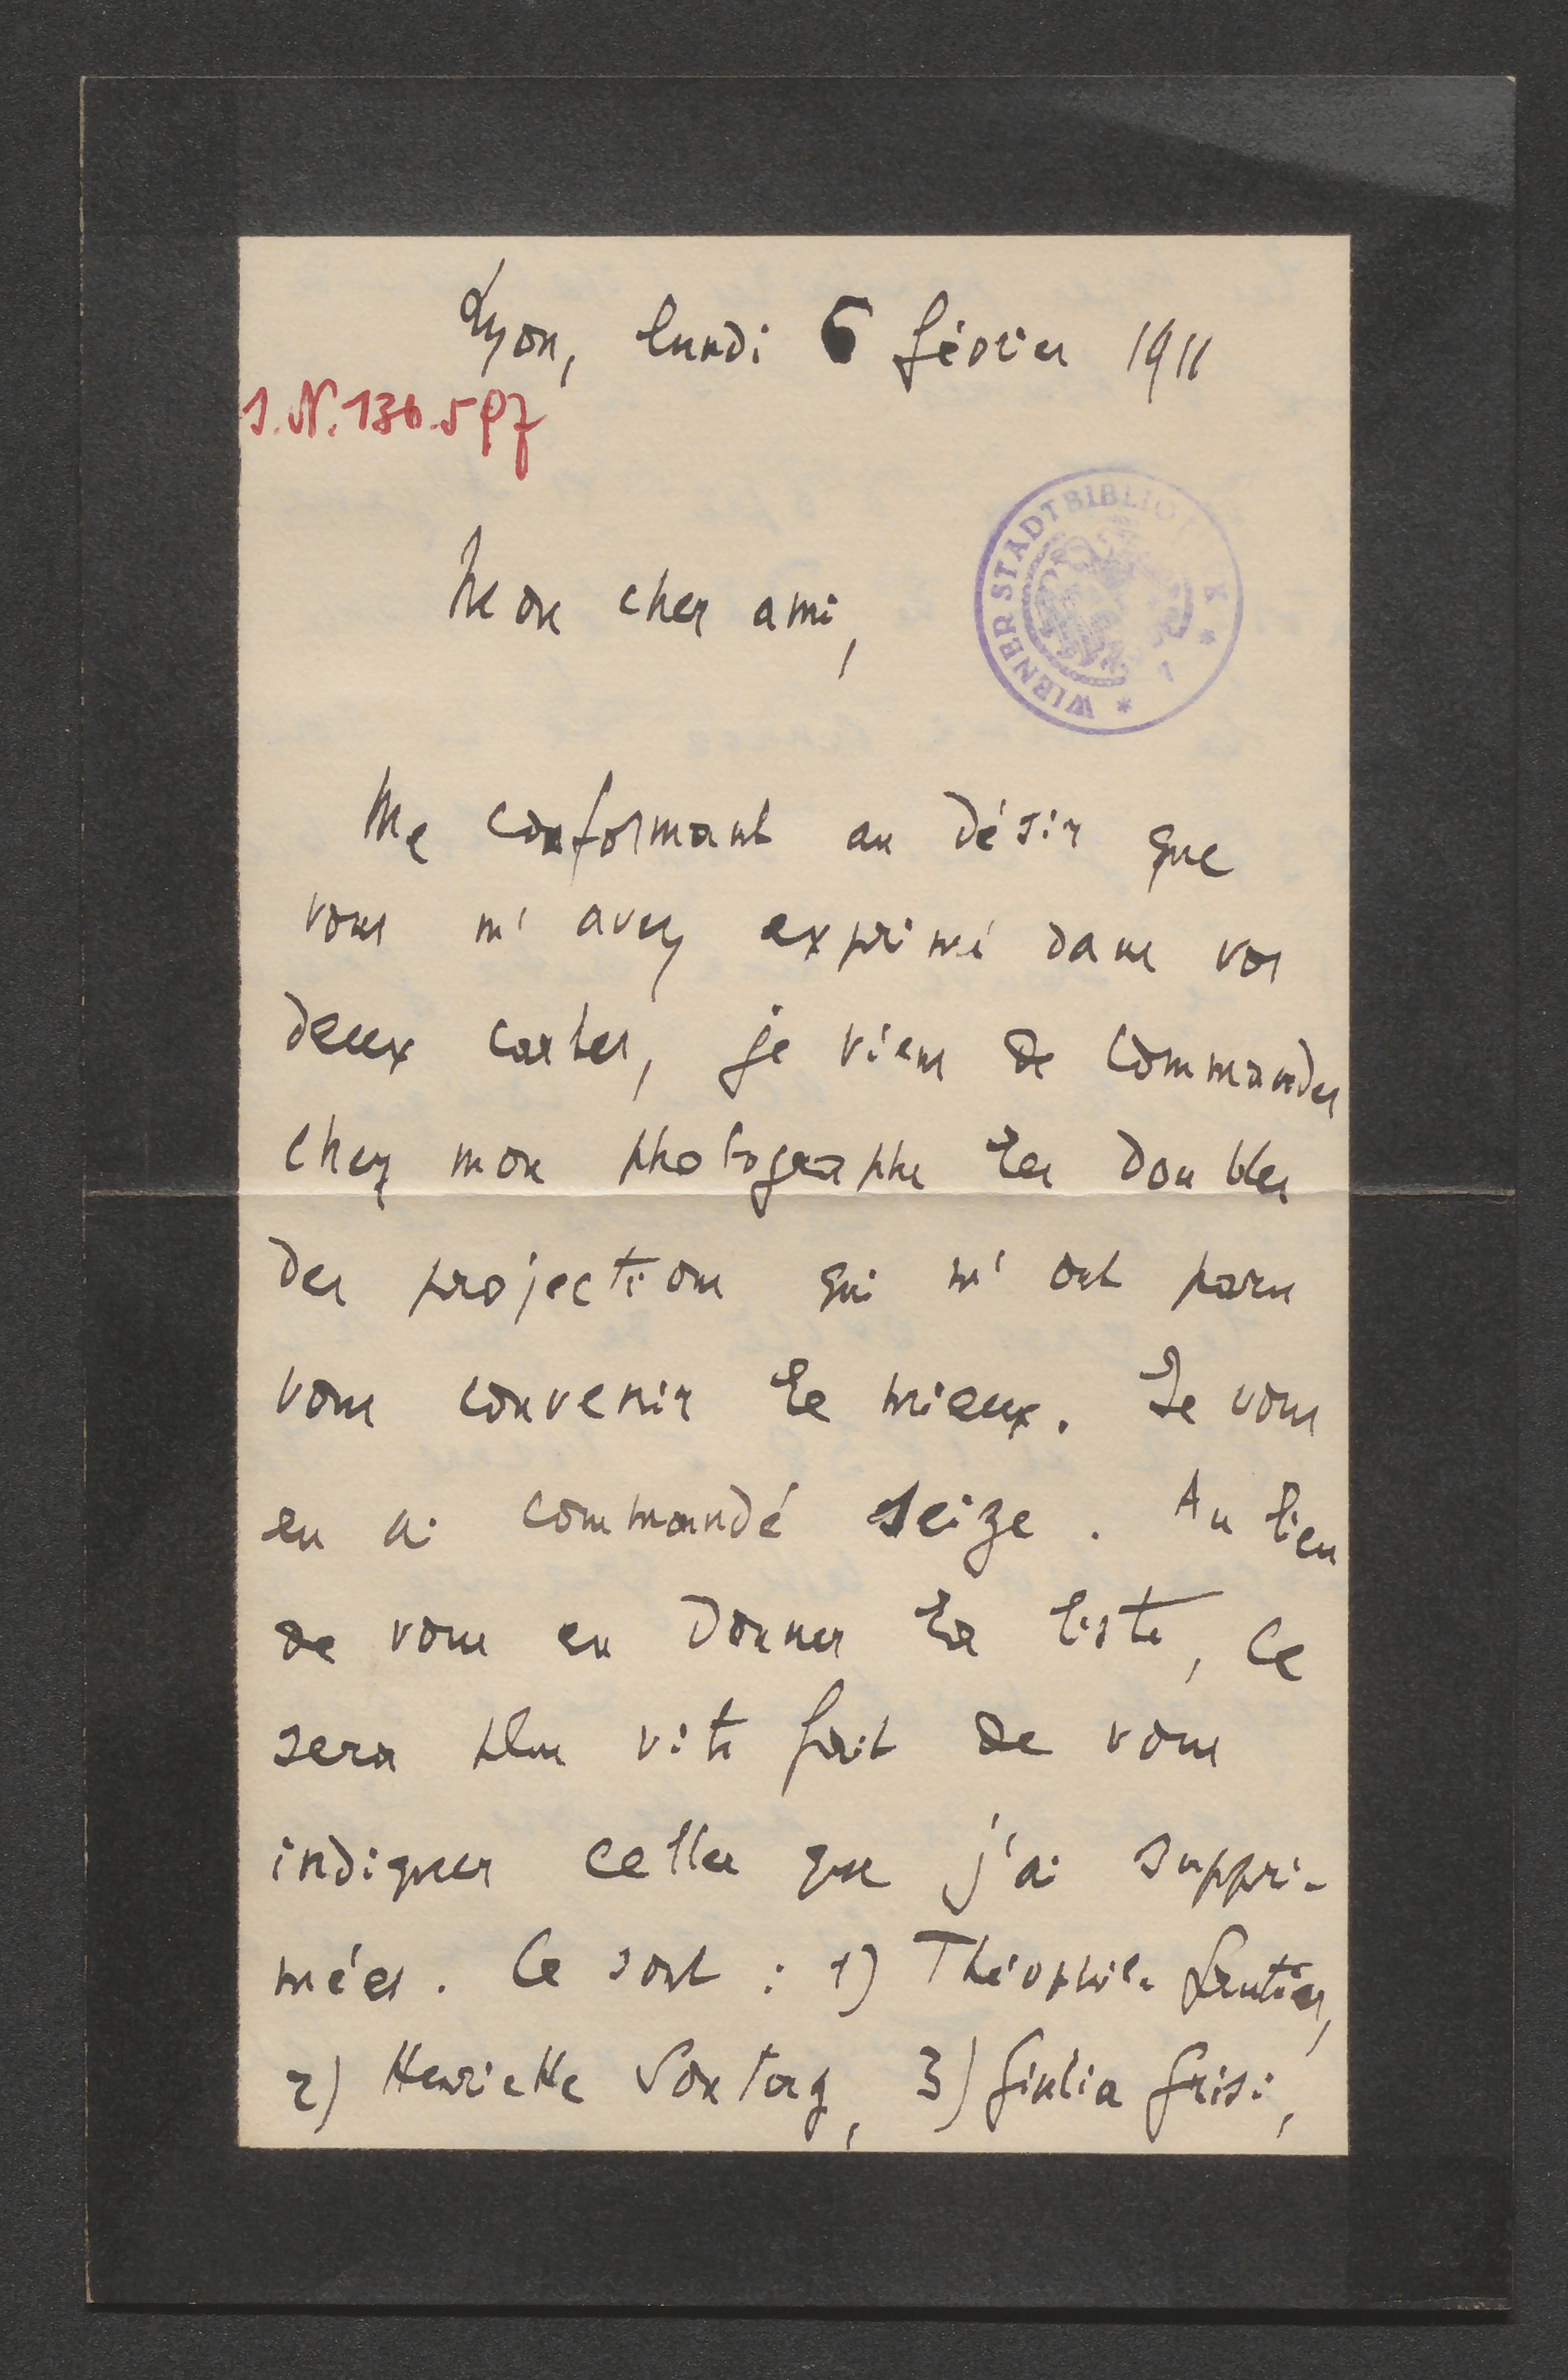 Lyon, lundi 6 février 1911
I.N. 136.597
WIENER STADTBIBLIOTHEK * 1 *
Mon cher ami,
Me conformant au désir que
vous m'avez exprimé dans vos
deux cartes, je viens de commander
chez mon photographe les doubles
des projections qui m'ont paru
vous convenir le mieux. Je vous
en ai commandé seize. Au lieu
de vous en donner la liste, ce
sera plus vite fait de vous
indiquer celles que j'ai suppri-
mées. Ce sont : 1) Théophile Gautier,
2) Henriette Sontag, 3) Giulia Grisi,